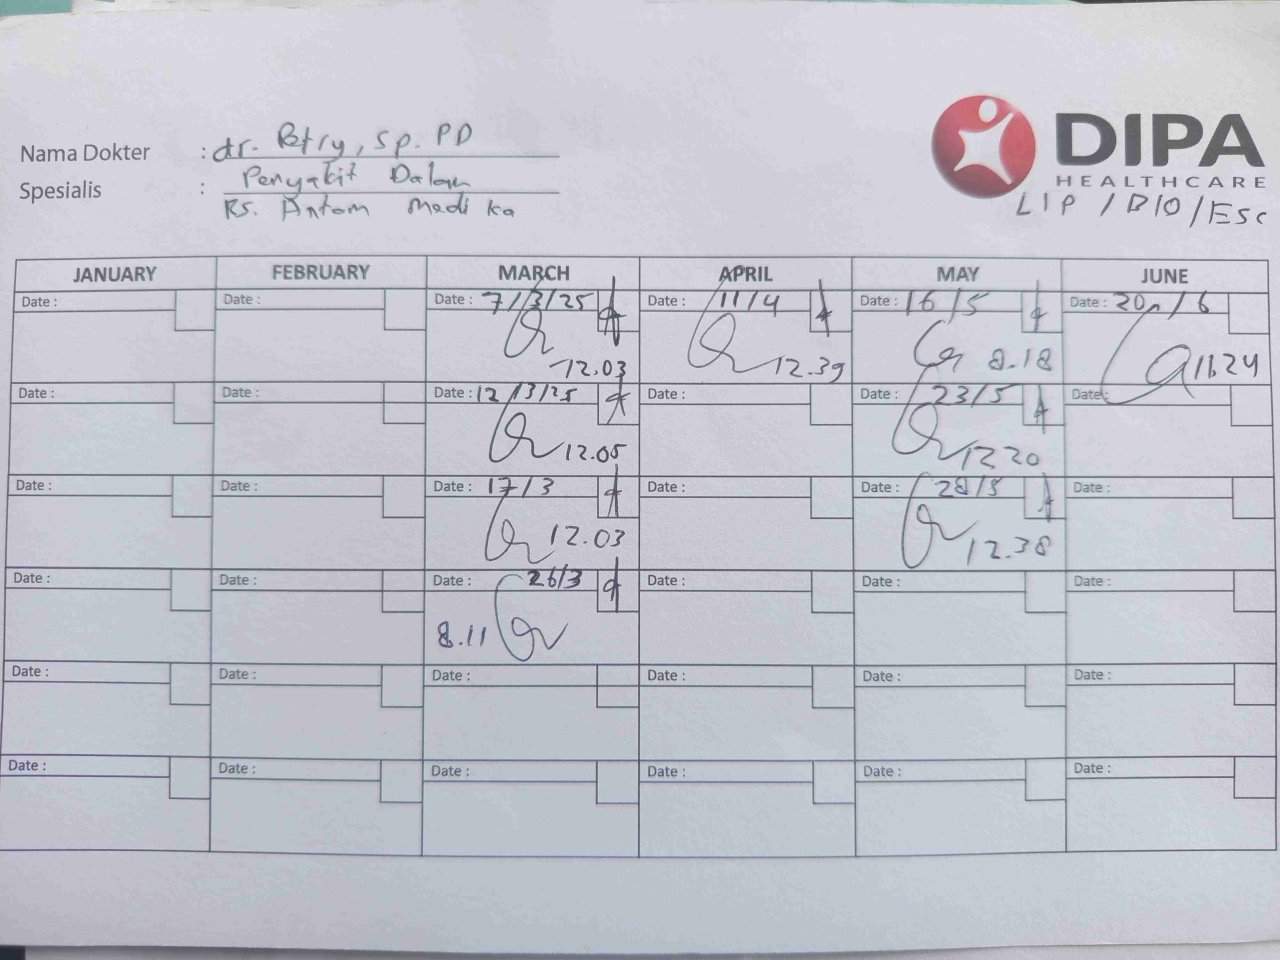 DIPA
HEALTHCARE
LIP / BIO / Esc
Nama Dokter : dr. Petry, Sp. PD
Spesialis : Penyakit Dalam
RS. Antam Medika
JANUARY FEBRUARY MARCH APRIL MAY JUNE
Date : Date : Date : 7/3/25 Date : 11/4 Date : 16/5 Date : 20/6
12.03 12.39 8.18 1624
Date : Date : Date : 12/3/25 Date : Date : 23/5 Date :
12.05 1220
Date : Date : Date : 17/3 Date : Date : 28/5 Date :
12.03 12.38
Date : Date : Date : 26/3 Date : Date : Date :
8.11
Date : Date : Date : Date : Date : Date :
Date : Date : Date : Date : Date : Date :